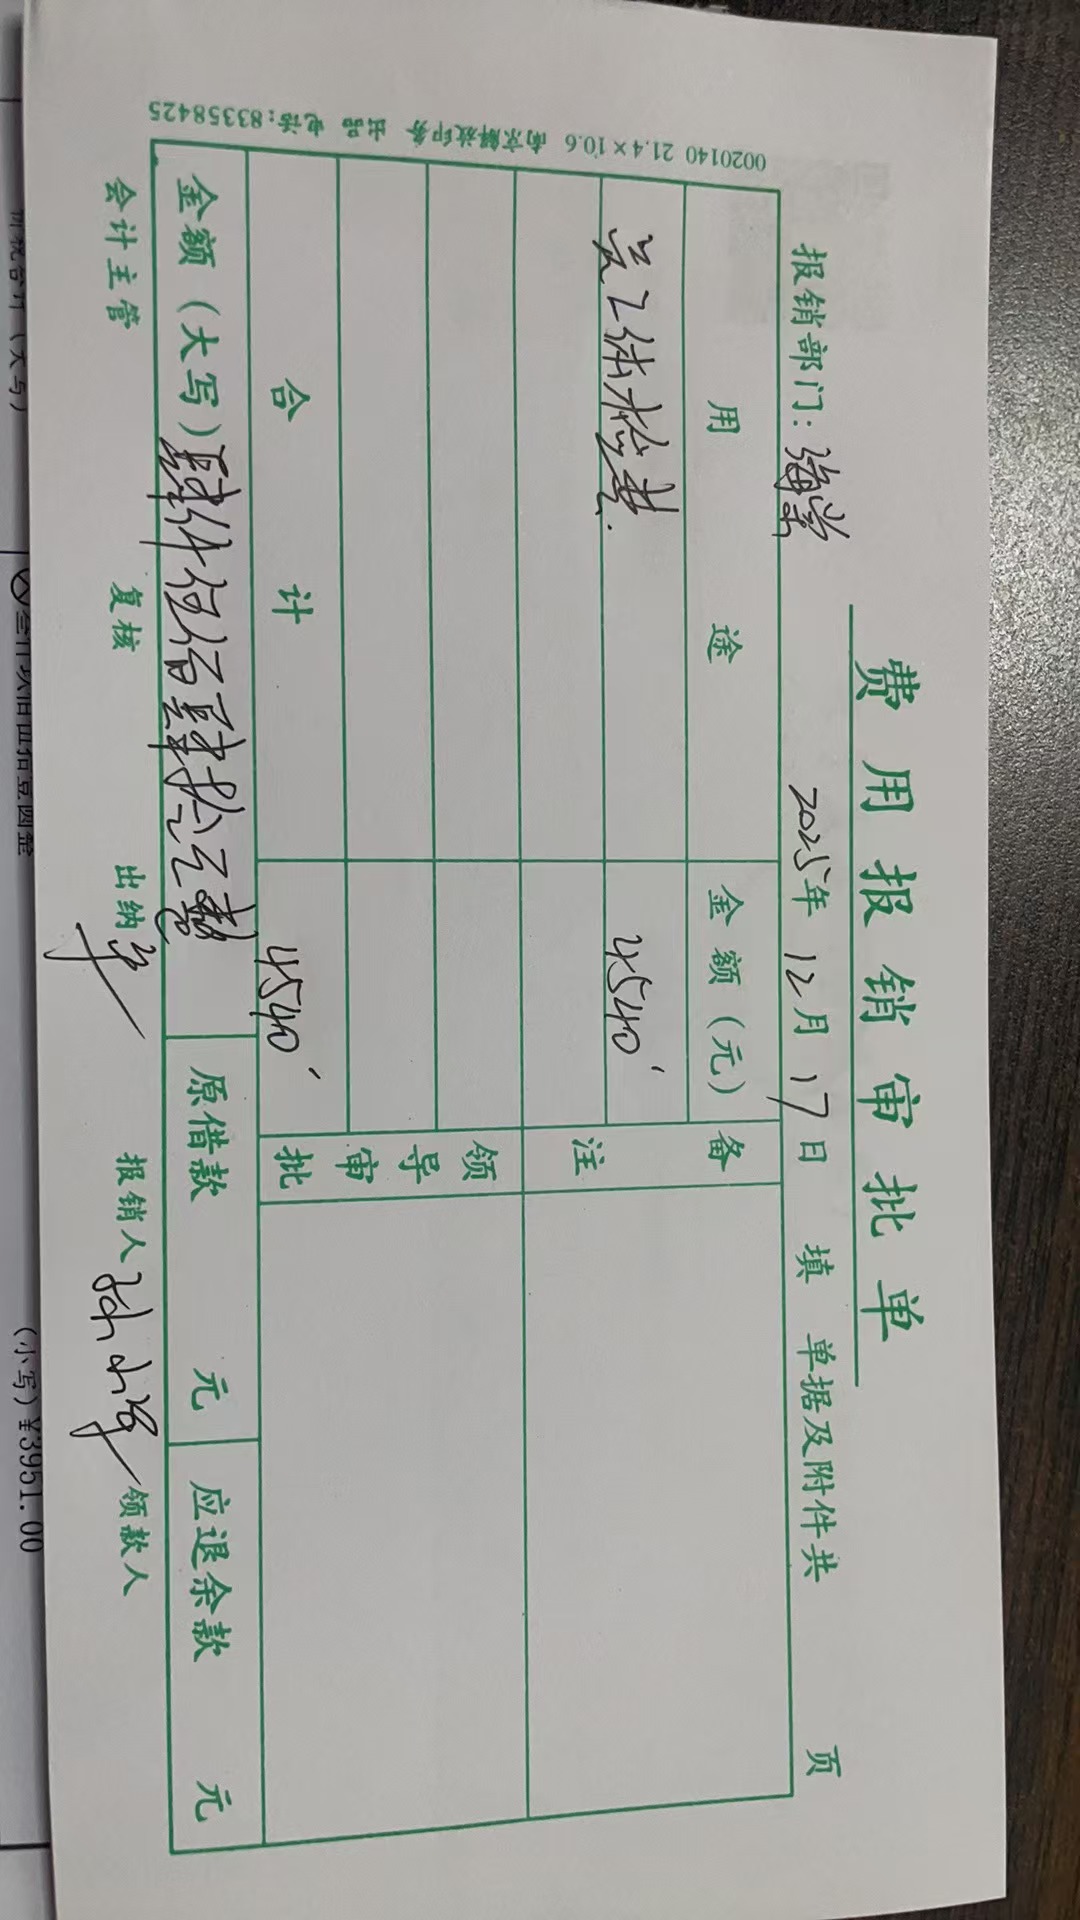 费用报销审批单
报销部门：海棠 2025年12月17日填 单据及附件共 页
用途 金额（元） 备注
员工体检费. 4540
领导审批
合计 4540
金额（大写）肆仟伍佰肆拾元整 原借款 元 应退余款 元
会计主管 复核 出纳 报销人 领款人
0020140 21.4×10.6 南京解放印务 出品 电话:83358425
价税合计（大写） 叁仟玖佰伍拾壹圆整 （小写）¥3951.00